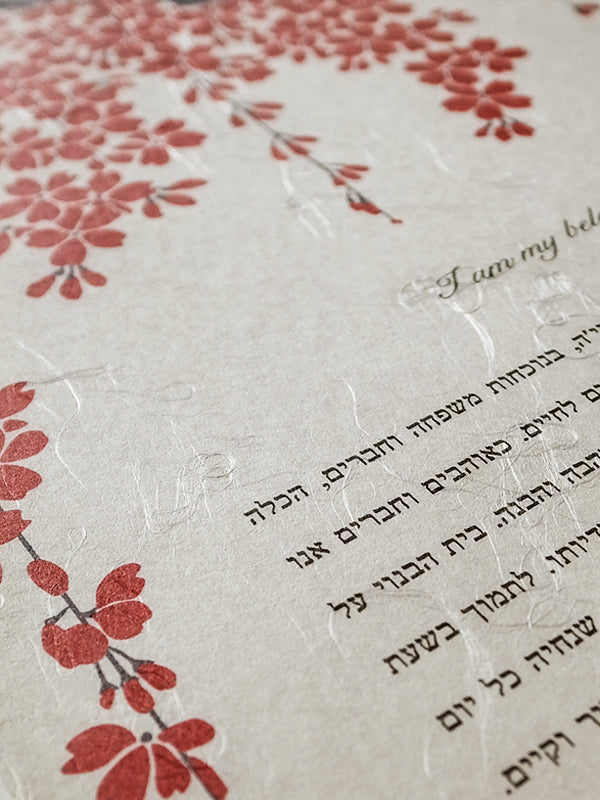 I am my
בנוכחות משפחה וחברים, הכלה
לחיים. כאוהבים וחברים אנו
והבנה. בית הבנוי על
לתמוך בשעת
שנחיה כל יום
וקיים.